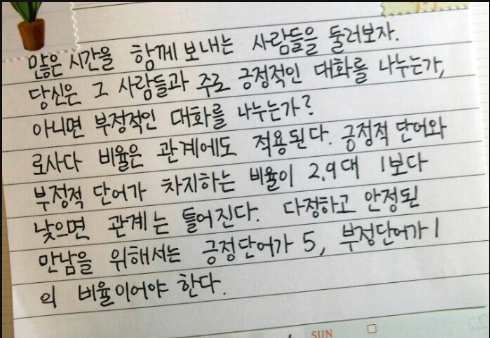 많은 시간을 함께 보내는 사람들을 둘러보자.
당신은 그 사람들과 주로 긍정적인 대화를 나누는가,
아니면 부정적인 대화를 나누는가?
로사다 비율은 관계에도 적용된다. 긍정적 단어와
부정적 단어가 차지하는 비율이 2.9대 1보다
낮으면 관계는 틀어진다. 다정하고 안정된
만남을 위해서는 긍정단어가 5, 부정단어가 1
의 비율이어야 한다.
SUN